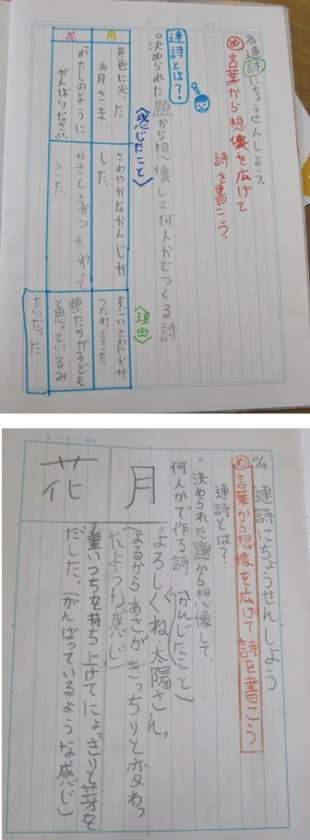 連詩にちょうせんしよう。
め 言葉から想像を広げて
詩を書こう。
連詩とは?
。決められた題から想像して何人かでつくる詩。
〈感じたこと〉
〈理由〉
月
黄色に光った
お月さま
さわやかなかんじが
した。
すごいさわやかが
つたわってきた。
花
わたしのように
がんばりなさい
やさしさがつたわって
きた。
種たちが子ども
て思っているみ
たいだった
10/18
連詩にちょうせんしよう
め 言葉から想像を広げて詩を書こう
連詩とは?
。決められた題から想像して
何人かで作る詩。
(かんじたこと)
月
。よろしくね太陽さん。
(よるからあさがきっちりと変わっ
たような感じ)
花
重いつちを持ち上げてにょっきりと芽を
だした。(がんばっているような感じ)